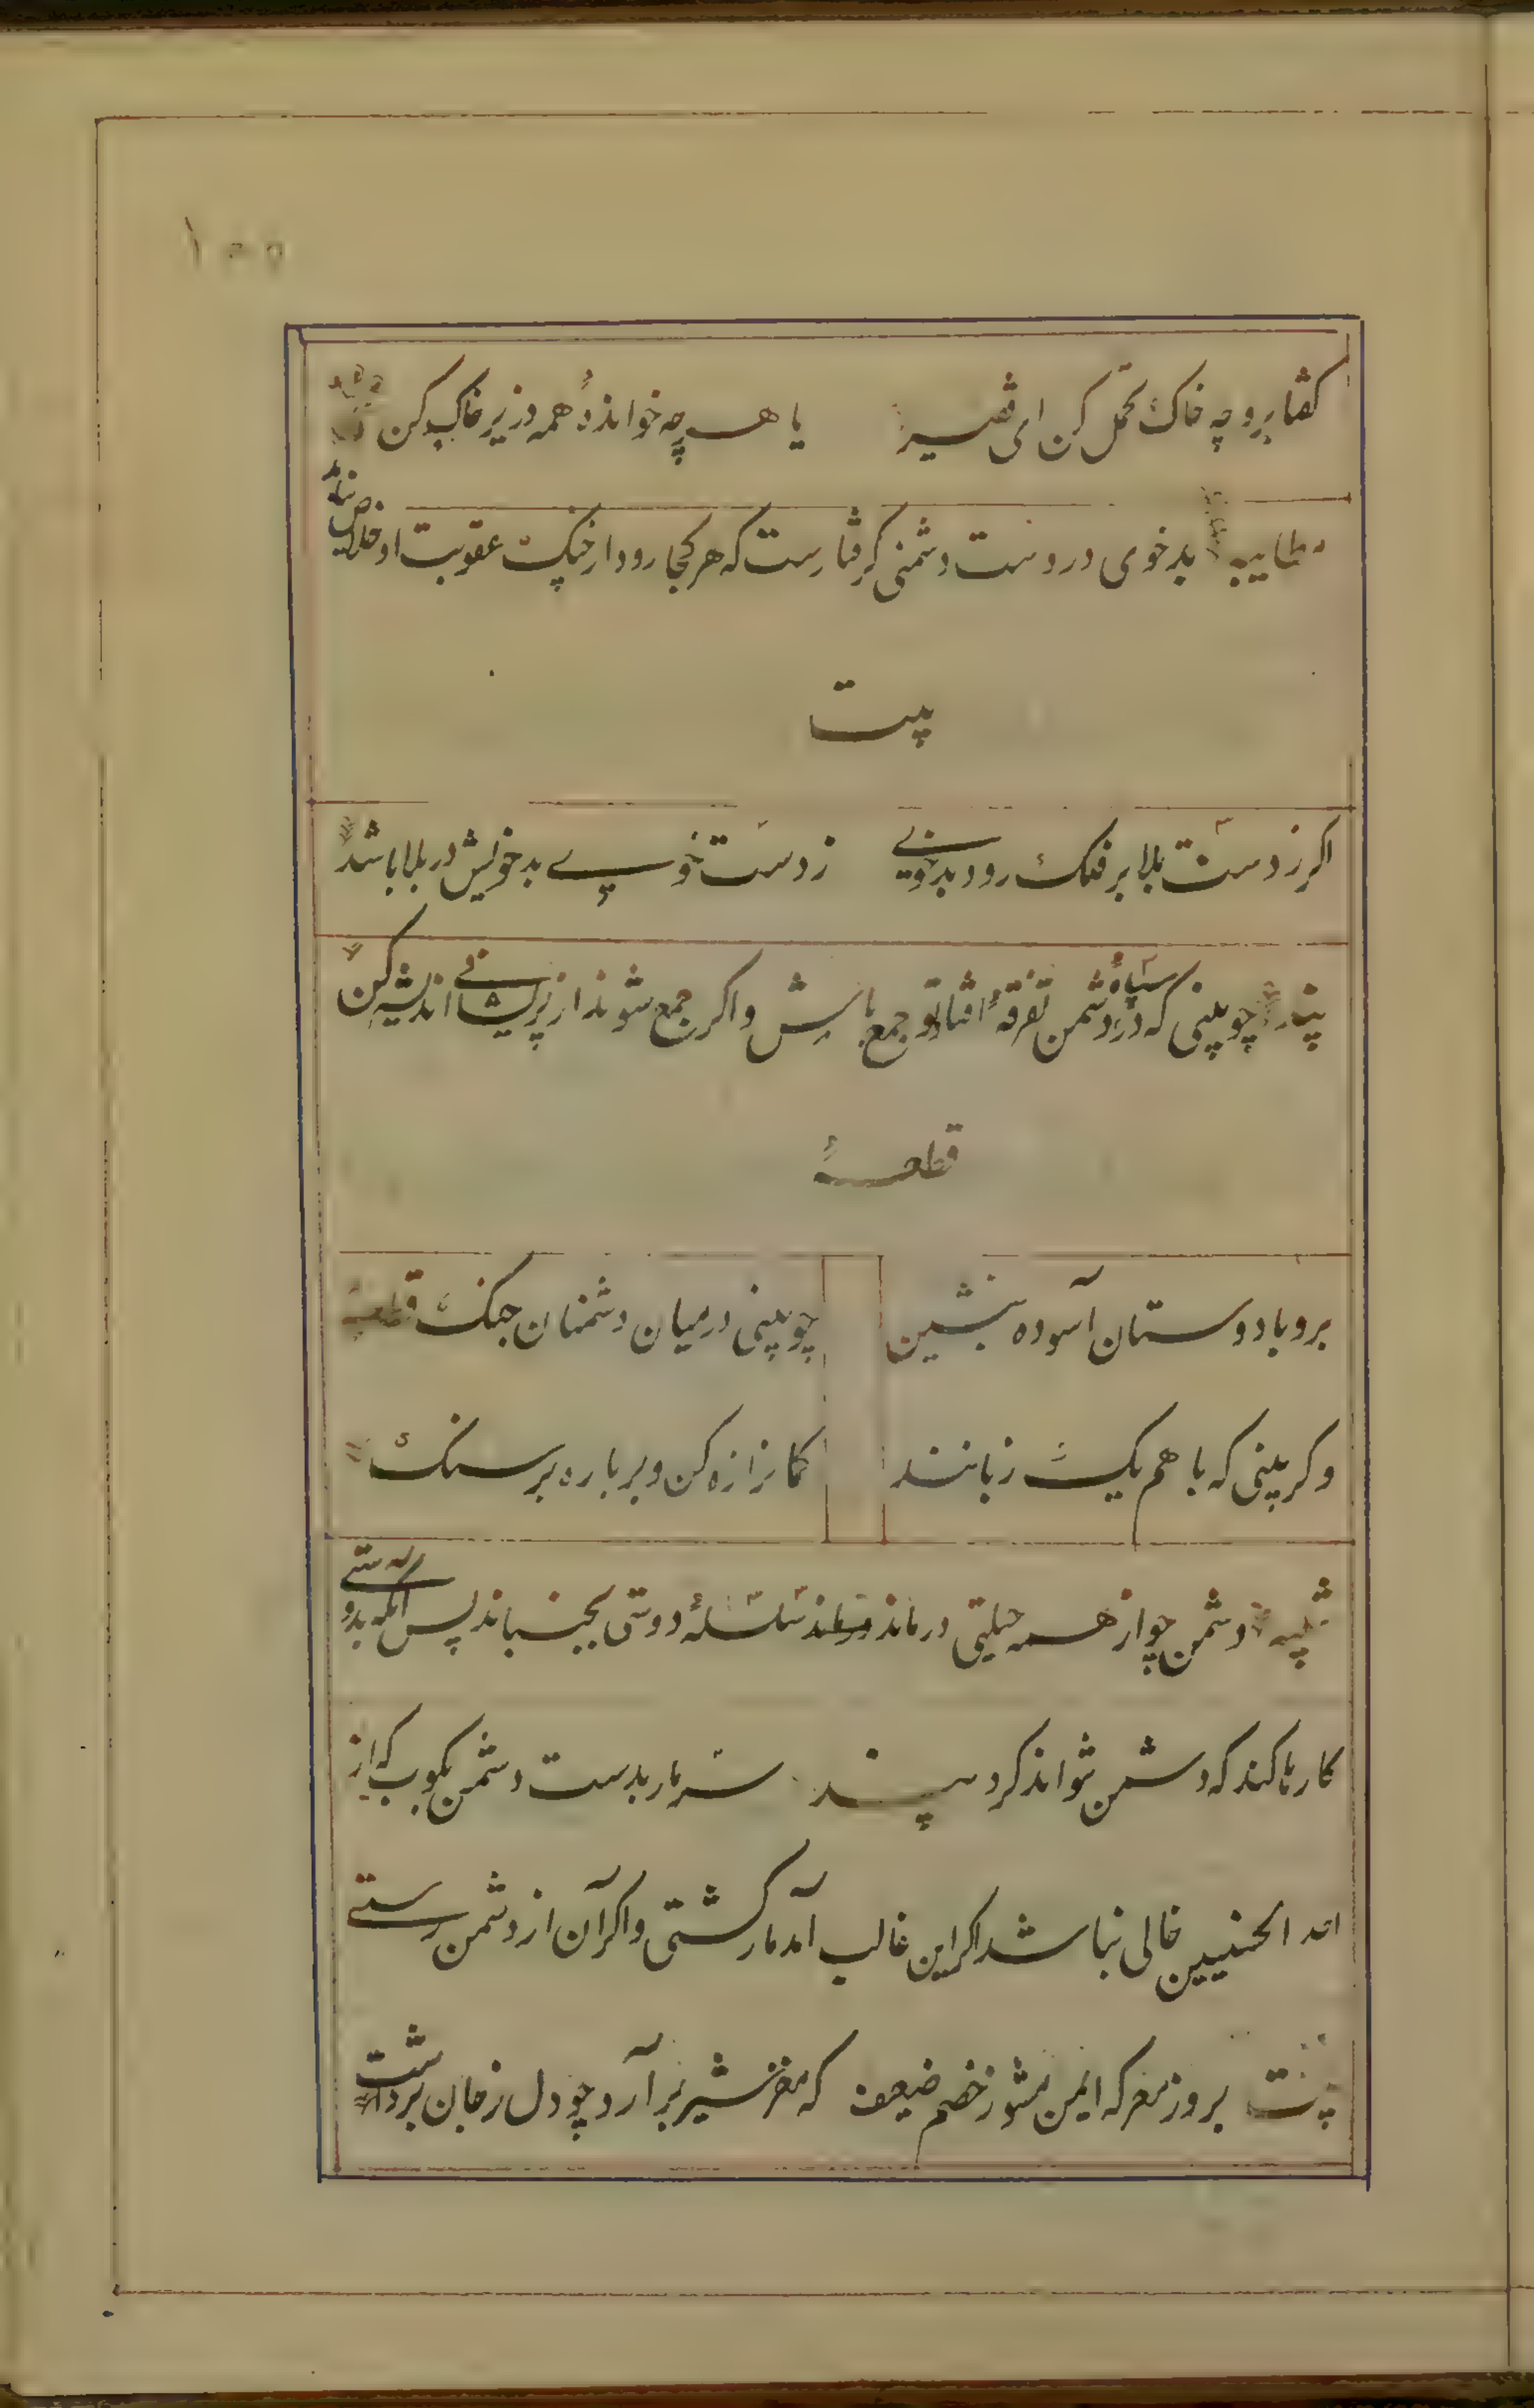 ۱۰۵
کفتا برو چه خاک تحمل کن ای فقیر یا هر چه خواندهٔ همه در زیر خاک کن
مطایبه بدخوی در دست دشمنی کرفتارست که هر کجا رود از چنک عقوبت او خلاص نیابد
بیت
اکر ز دست بلا بر فلک رود بدخویی ز دست خوی بد خویش در بلا باشد
پند چو بینی که در سپاه دشمن تفرقه افتاد تو جمع باش و اکر جمع شوند از پریشانی اندیشه کن
قطعه
برو با دوستان آسوده بنشین چو بینی در میان دشمنان جنک
وکر بینی که با هم یک زبانند کمانرا زه کن و بر باره بر سنک
تنبیه دشمن چو از همه حیلتی درماند سلسلهٔ دوستی بجنباند پس آنکه بدوستی
کارها کند که دشمن نتواند کرد پند سر مار بدست دشمن بکوب که از
احد الحسنیین خالی نباشد اکر این غالب آمد مار کشتی و اکر آن از دشمن رستی
بیت بروز معرکه ایمن مشو ز خصم ضعیف که مغز شیر برآرد چو دل ز جان برداشت